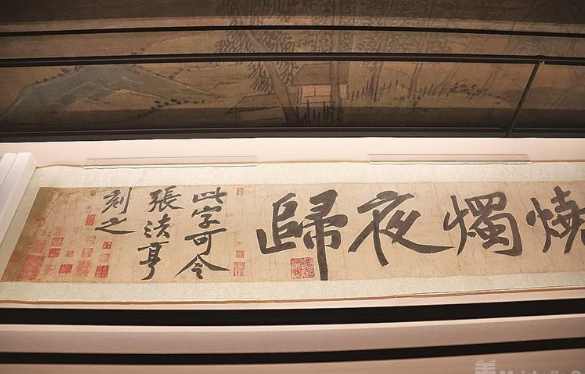 燒燭夜歸
此字可令
張法亨
刻之